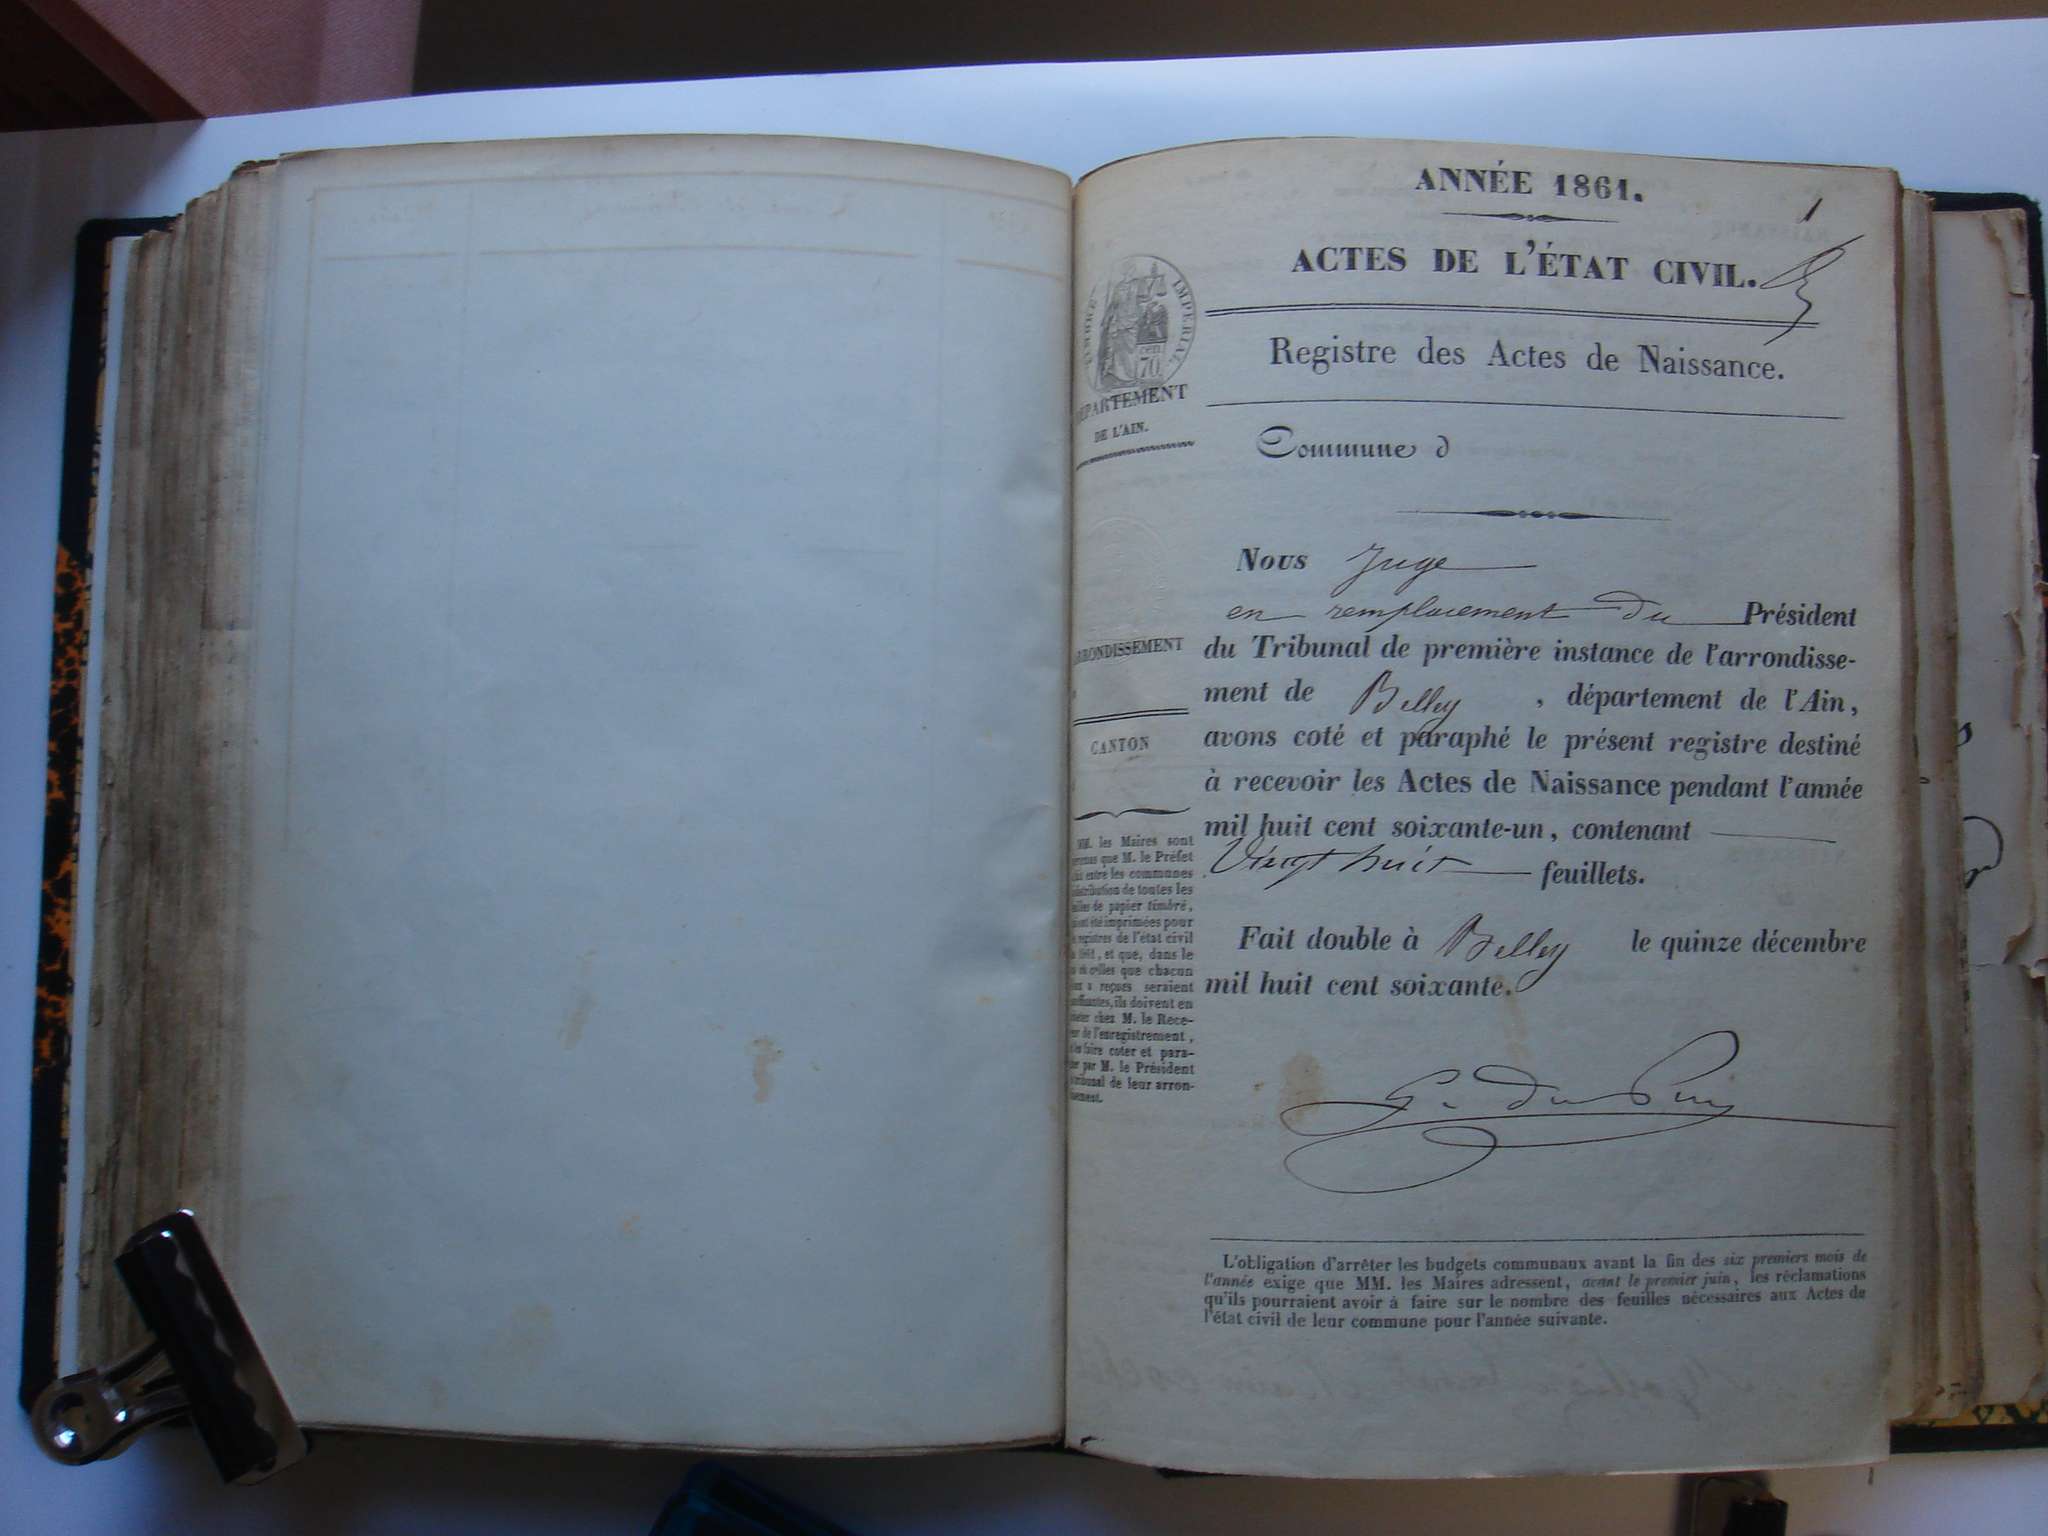 ANNÉE 1861.
1
ACTES DE L'ÉTAT CIVIL.
Registre des Actes de Naissance.
TIMBRE IMPÉRIAL
70 cen
DÉPARTEMENT
DE L'AIN.
Commune d
Nous Juge
en remplacement du Président
du Tribunal de première instance de l'arrondisse-
ment de Belley, département de l'Ain,
avons coté et paraphé le présent registre destiné
à recevoir les Actes de Naissance pendant l'année
mil huit cent soixante-un, contenant
Vingt huit feuillets.
Fait double à Belley le quinze décembre
mil huit cent soixante.
G. du Puy
RRONDISSEMENT
CANTON
MM. les Maires sont
que M. le Préfet
entre les communes
distribution de toutes les
de papier timbré,
été imprimées pour
registres de l'état civil
1861, et que, dans le
où celles que chacun
a reçues seraient
, ils doivent en
chez M. le Rece-
de l'enregistrement,
les faire coter et para-
par M. le Président
tribunal de leur arron-
L'obligation d'arrêter les budgets communaux avant la fin des six premiers mois de
l'année exige que MM. les Maires adressent, avant le premier juin, les réclamations
qu'ils pourraient avoir à faire sur le nombre des feuilles nécessaires aux Actes de
l'état civil de leur commune pour l'année suivante.